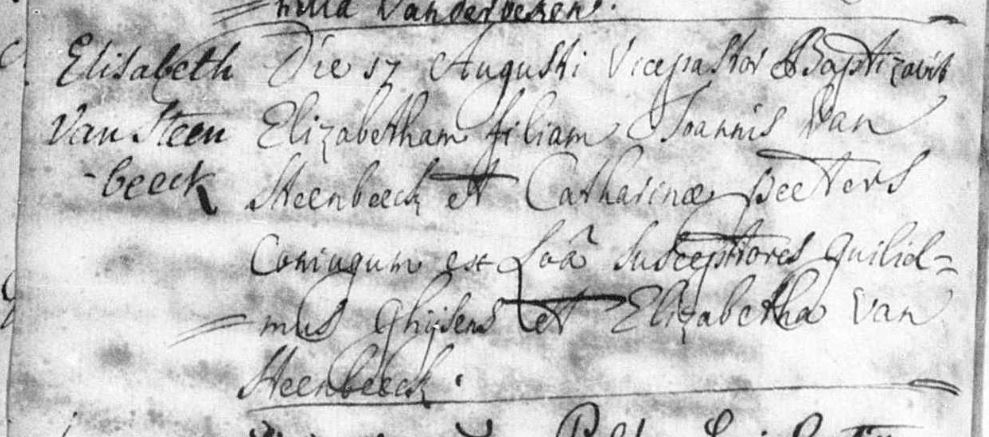 Vanderbeken.
Elisabeth Die 17 Augusti Vicepastor Baptizavit
Van Steen Elizabetham filiam Joannis Van
-beeck Steenbeeck et Catharinæ peeters
Coniugum ex Loâ Susceptores Guiliel=
=mus Ghijsens et Elizabetha Van
Steenbeeck.